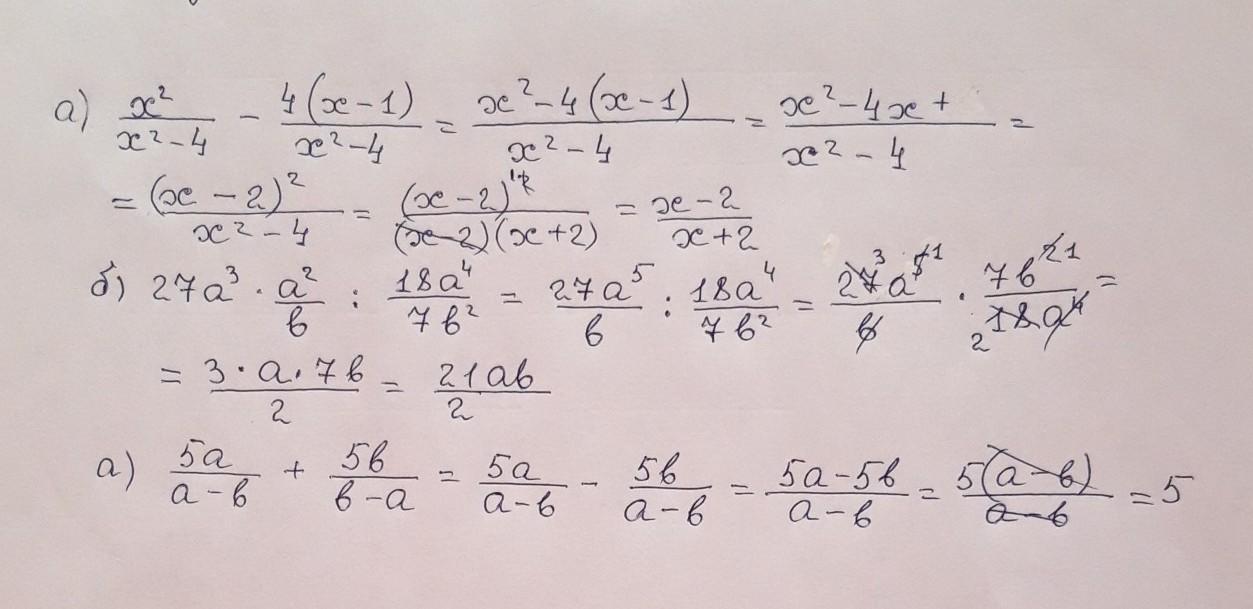 а) x²/(x²-4) - 4(x-1)/(x²-4) = (x²-4(x-1))/(x²-4) = (x²-4x+)/(x²-4) =
= (x-2)²/(x²-4) = (x-2)^1/((x-2)(x+2)) = (x-2)/(x+2)
б) 27a³ · a²/b : 18a⁴/7b² = 27a⁵/b : 18a⁴/7b² = 27 3 a^5 1/b · 7b^2 1/2 18a⁴ =
= 3·a·7b/2 = 21ab/2
а) 5a/(a-b) + 5b/(b-a) = 5a/(a-b) - 5b/(a-b) = (5a-5b)/(a-b) = 5(a-b)/(a-b) = 5